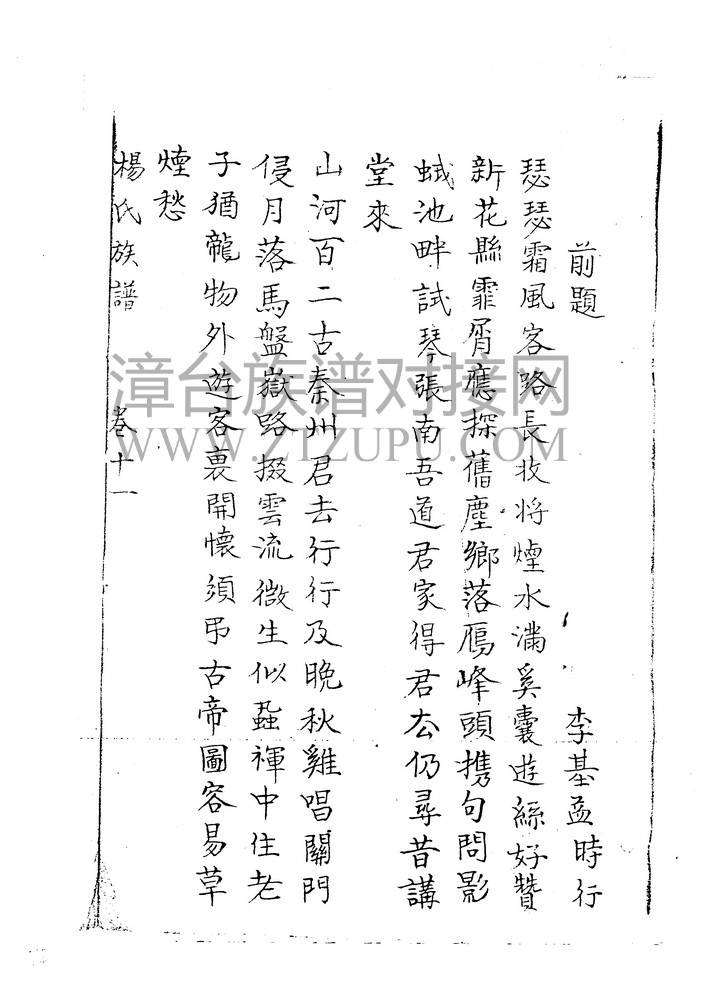 前題
李基孟時行
瑟瑟霜風客路長收將煙水滿奚囊遊絲好贊
新花縣霏屑應探舊塵鄉落鴈峰頭携句問影
蛾池畔試琴張南吾道君家得君去仍尋昔講
堂來
山河百二古秦州君去行行及晚秋雞唱關門
侵月落馬盤嶽路掇雲流微生似蝨褌中住老
子猶龍物外遊客裏開懷須弔古帝圖容易草
煙愁
楊氏族譜 卷十一
漳台族谱对接网
WWW.ZTZUPU.COM